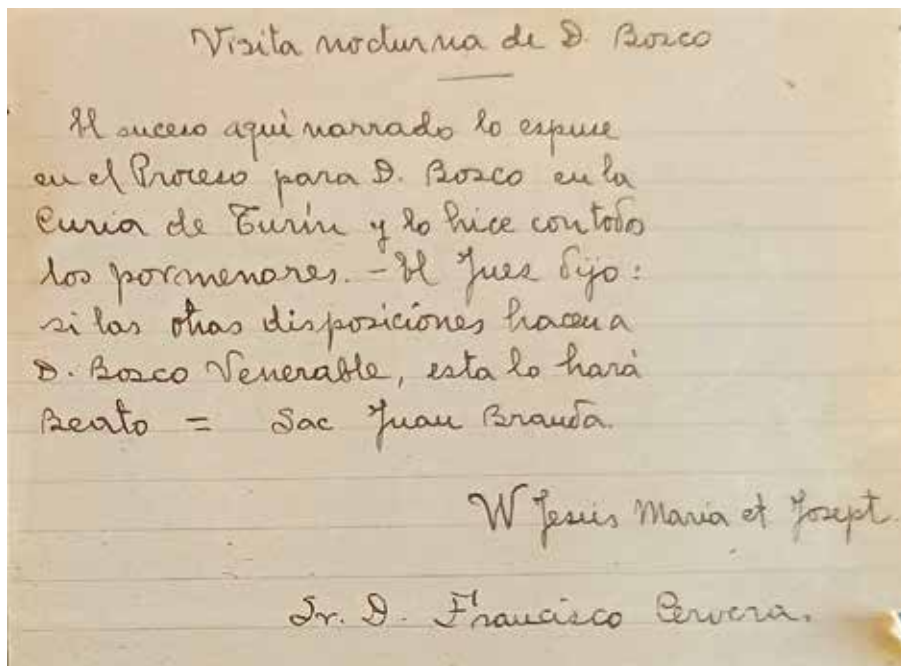 Visita nocturna de D. Bosco
El suceso aquí narrado lo espuse
en el Proceso para D. Bosco en la
Curia de Turín y lo hice con todos
los pormenores. - El Juez dijo:
si las otras disposiciones hacen a
D. Bosco Venerable, esta lo hará
Beato = Sac Juan Branda.
W Jesús Maria et Josept.
Sr. D. Francisco Cervera.